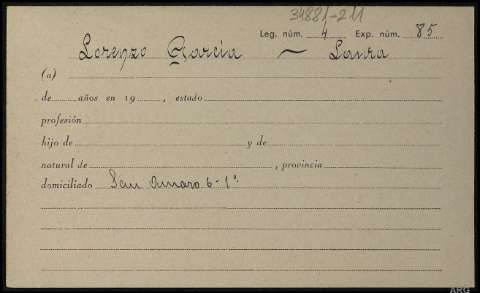 31881-211
Leg. núm. 4 Exp. núm. 85
Lorenzo Garcia ~ Laura
(a)
de años en 19 , estado
profesión
hijo de y de
natural de , provincia
domiciliado San Amaro 6-1º
ARG